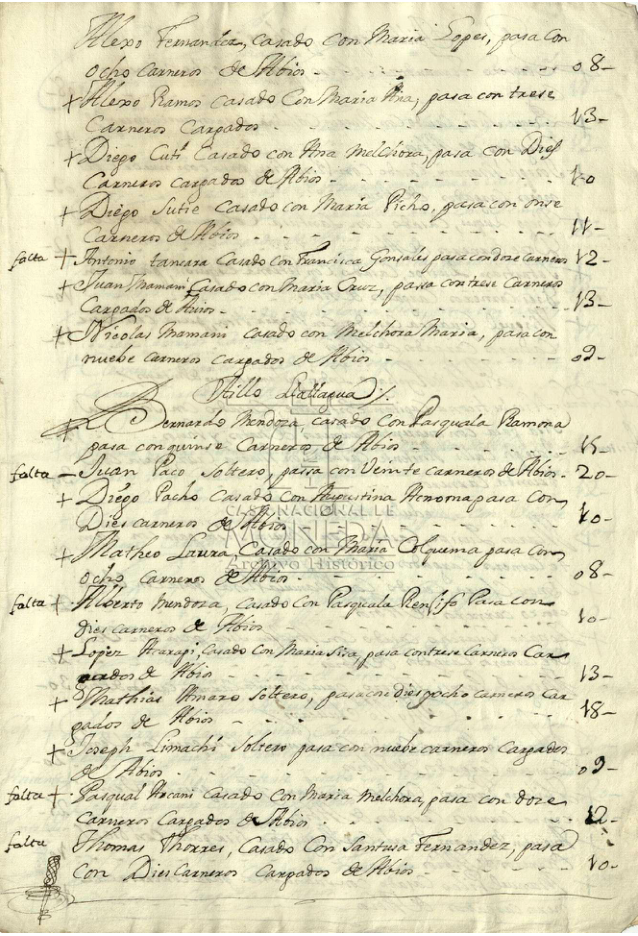 Alexo Fernandez, casado con Maria Lopes, pasa con
ocho carneros de Abios - 08-
+ Alexo Ramos Casado Con Maria Ana, pasa con trese
Carneros Cargados - 13-
+ Diego Cuti Casado con Ana Melchora, pasa con Dies
Carneros cargados de Abios - 10
+ Diego Sutie Casado con Maria Picho, pasa con onse
Carneros de Abios - 11-
falta + Antonio tancara Casado con Francisca Gonsales pasa con dose carneros 12-
+ Juan Mamani Casado con Maria Cruz, passa con trese Carneros
Cargados de Abios - 13-
+ Nicolas Mamani casado con Melchora Maria, pasa con
nuebe carneros cargados de Abios - 09-
Aillo Llallagua
+ Bernardo Mendoza, casado con Pasquala Ramona
pasa con quinse Carneros de Abios - 15-
falta - Juan Paco Soltero, passa con Veinte carneros de Abios - 20-
+ Diego Pacho Casado con Augustina pasa con
Dies carneros de Abios - 10-
CASA NACIONAL DE
MONEDA
Archivo Histórico
+ Matheo Laura, Casado con Maria Colquema pasa con
ocho carneros de Abios - 08-
falta + Alberto Mendoza, casado Con Pasquala Rensifo Pasa con
dies carneros de Abios - 10-
+ Lopez Acarapi, casado con Maria Sisa, pasa con trese Carneros Car
gados de Abios - 13-
+ Mathias Amaro Soltero, pasa con dies yocho carneros Car
gados de Abios - 18-
+ Joseph Limachi Soltero pasa con nuebe carneros Cargados
de Abios - 09-
falta + Pasqual Arcani Casado con Maria Melchora, pasa con dose
carneros Cargados de Abios - 12-
falta Thomas Thorres, Casado Con Santusa Fernandez, pasa
con Dies Carneros Cargados de Abios - 10-